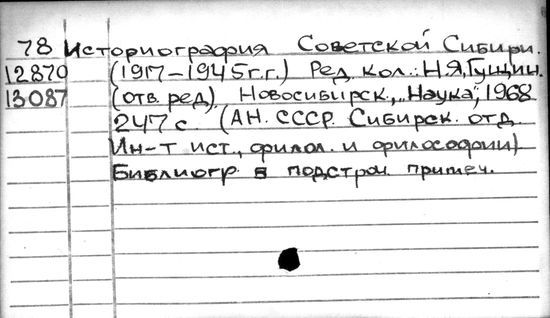 78 Историография Советской Сибири.
12870 (1917-1945г.г.) Ред. кол.: Н.Я.Гущин.
13087 (отв. ред). Новосибирск, „Наука", 1968
247 с. (АН. СССР. Сибирск. отд.
Ин-т ист., филол. и философии)
Библиогр в подстроч примеч.